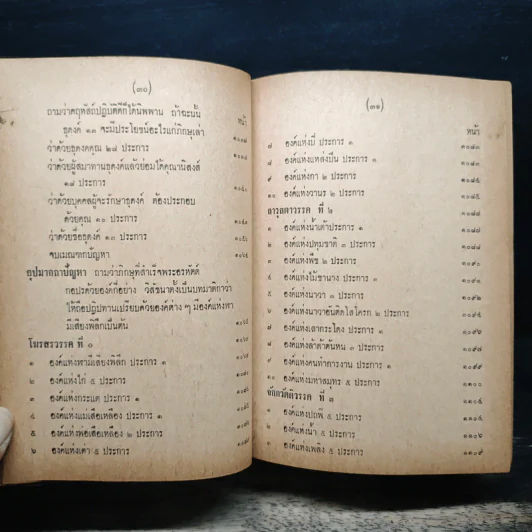 (๓๐)
หน้า
ถามว่าคฤหัสถ์ปฏิบัติดีก็ได้นิพพาน ถ้าฉะนั้น
ธุดงค์ ๑๓ จะมีประโยชน์อะไรแก่ภิกษุเล่า
ว่าด้วยธุดงคคุณ ๒๘ ประการ
ว่าด้วยผู้สมาทานธุดงค์แล้วย่อมได้คุณานิสงส์
๑๘ ประการ
ว่าด้วยบุคคลผู้จะรักษาธุดงค์ ต้องประกอบ
ด้วยคุณ ๑๐ ประการ
ว่าด้วยชื่อธุดงค์ ๑๓ ประการ
จบเมณฑกปัญหา
อุปมากถาปัญหา ถามว่าภิกษุที่สำเร็จพระอรหัตต์
กอปรด้วยองค์กี่อย่าง วิสัชนาตั้งเป็นบทมาติกาว่า
ให้ถือปฏิปทานเปรียบด้วยองค์ต่าง ๆ มีองค์แห่งพา
มีเสียงพิลึกเป็นต้น
โฆรสรวรรค ที่ ๑
๑ องค์แห่งพามีเสียงพิลึก ประการ ๑
๒ องค์แห่งไก่ ๕ ประการ
๓ องค์แห่งกระแต ประการ ๑
๔ องค์แห่งแม่เสือเหลือง ประการ ๑
๕ องค์แห่งพ่อเสือเหลือง ๒ ประการ
๖ องค์แห่งเต่า ๕ ประการ
(๓๑)
หน้า
๗ องค์แห่งปี่ ประการ ๑ ๑๐๘๓
๘ องค์แห่งแหล่งปืน ประการ ๑
๙ องค์แห่งกา ๒ ประการ
๑๐ องค์แห่งวานร ๒ ประการ
ลาวุลดาวรรค ที่ ๒
๑ องค์แห่งน้ำเต้าประการ ๑
๒ องค์แห่งปทุมชาติ ๓ ประการ
๓ องค์แห่งพืช ๒ ประการ
๔ องค์แห่งไม้ขานาง ประการ ๑
๕ องค์แห่งนาวา ๓ ประการ
๖ องค์แห่งนาวาอันติดโสโครก ๒ ประการ
๗ องค์แห่งเสากระโดง ประการ ๑ ๑๐๙๖
๘ องค์แห่งล้าต้าต้นหน ๓ ประการ ๑๐๙๗
๙ องค์แห่งคนทำการงาน ประการ ๑
๑๐ องค์แห่งมหาสมุทร ๕ ประการ ๑๑๐๐
จักกวัตติวรรค ที่ ๓
๑ องค์แห่งปถพี ๕ ประการ
๒ องค์แห่งน้ำ ๕ ประการ ๑๑๐๖
๓ องค์แห่งเพลิง ๕ ประการ ๑๑๐๙